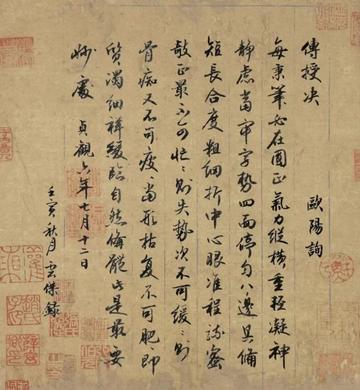 傳授决
歐陽詢
每秉筆必在圓正氣力縱橫重輕凝神
靜慮當审字勢四面停勻八邊具備
短長合度粗細折中心眼准程疏密
敧正最不可忙〻則失勢次不可緩〻則
骨痴又不可瘦〻當形枯复不可肥〻即
質濁細詳緩臨自然備體此是最要
妙處 貞觀六年七月十二日
壬寅秋月雲傑錄